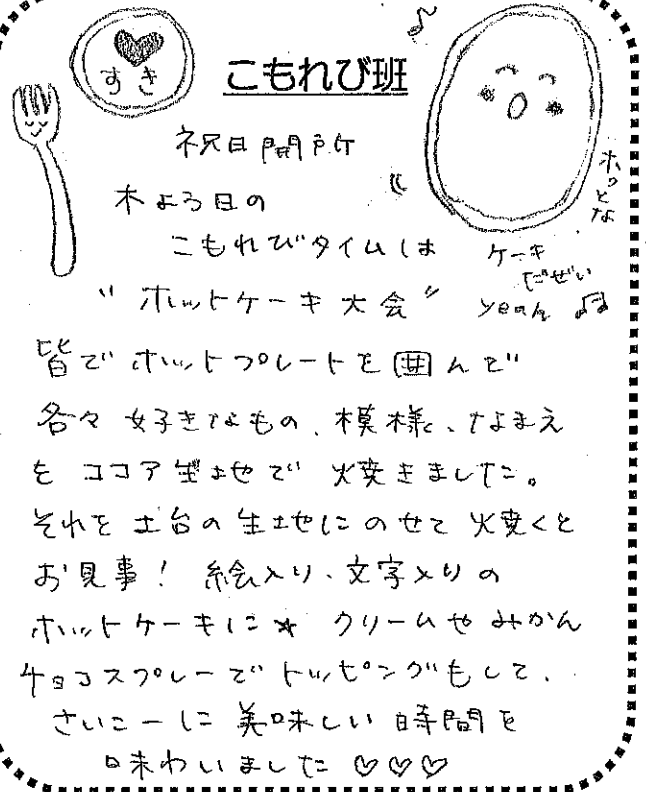 すき
こもれび班
祝日開所
木よう日の
こもれびタイムは
"ホットケーキ大会"
ホッとな
ケーキ
だぜぃ
yeah
皆でホットプレートを囲んで
各々好きなもの、模様、なまえ
をココア生地で焼きました。
それを土台の生地にのせて焼くと
お見事!絵入り、文字入りの
ホットケーキに★クリームやみかん
チョコスプレーでトッピングもして、
さいこーに美味しい時間を
味わいました♡♡♡